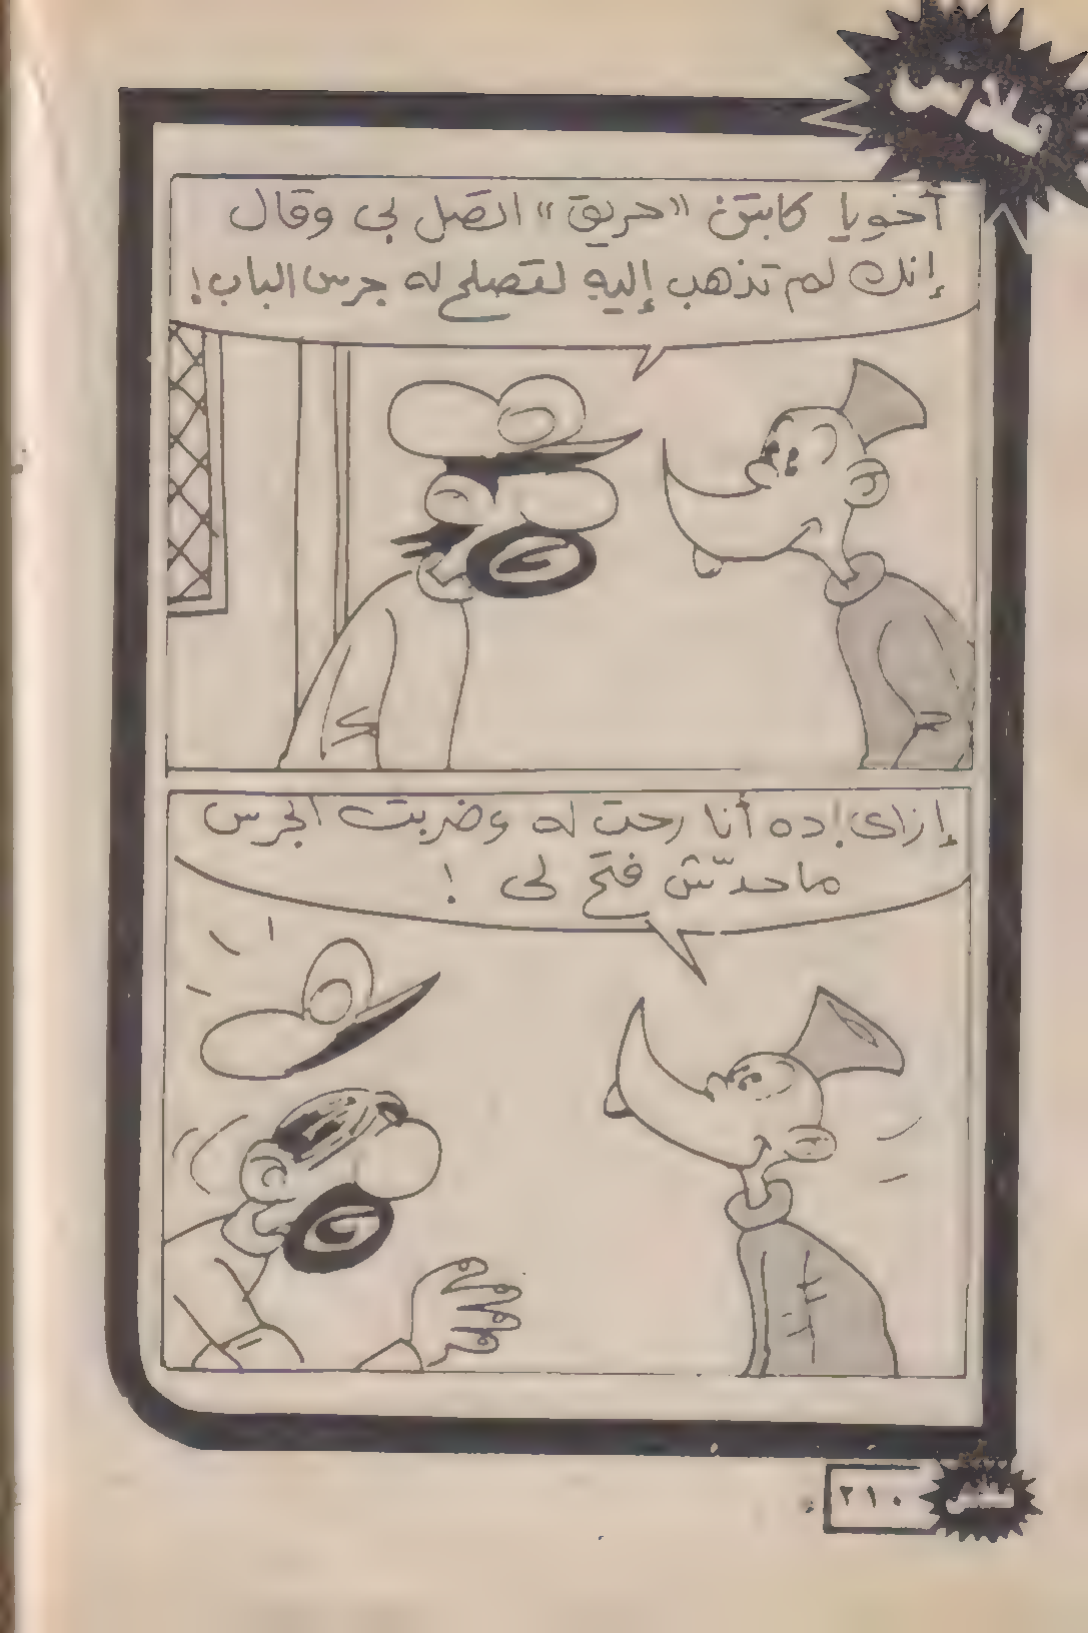 فلاش
أخويا كابتن «حريق» اتصل بى وقال
إنك لم تذهب إليه لتصلح له جرس الباب!
إزاى! ده أنا رحت له وضربت الجرس
ماحدّش فتح لى !
٢١٠
فلاش